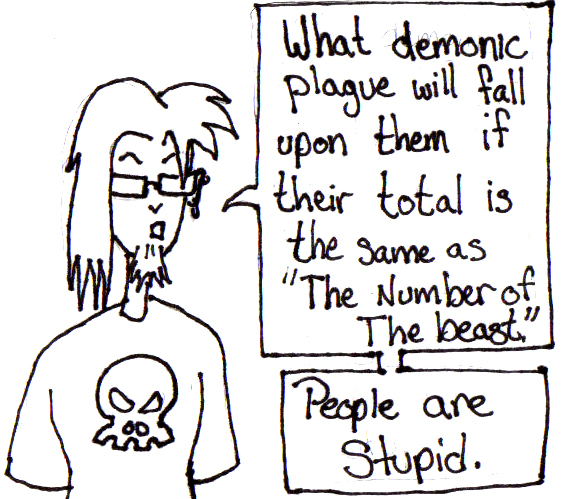 What demonic
plague will fall
upon them if
their total is
the same as
"The Number of
The beast."
People are
Stupid.